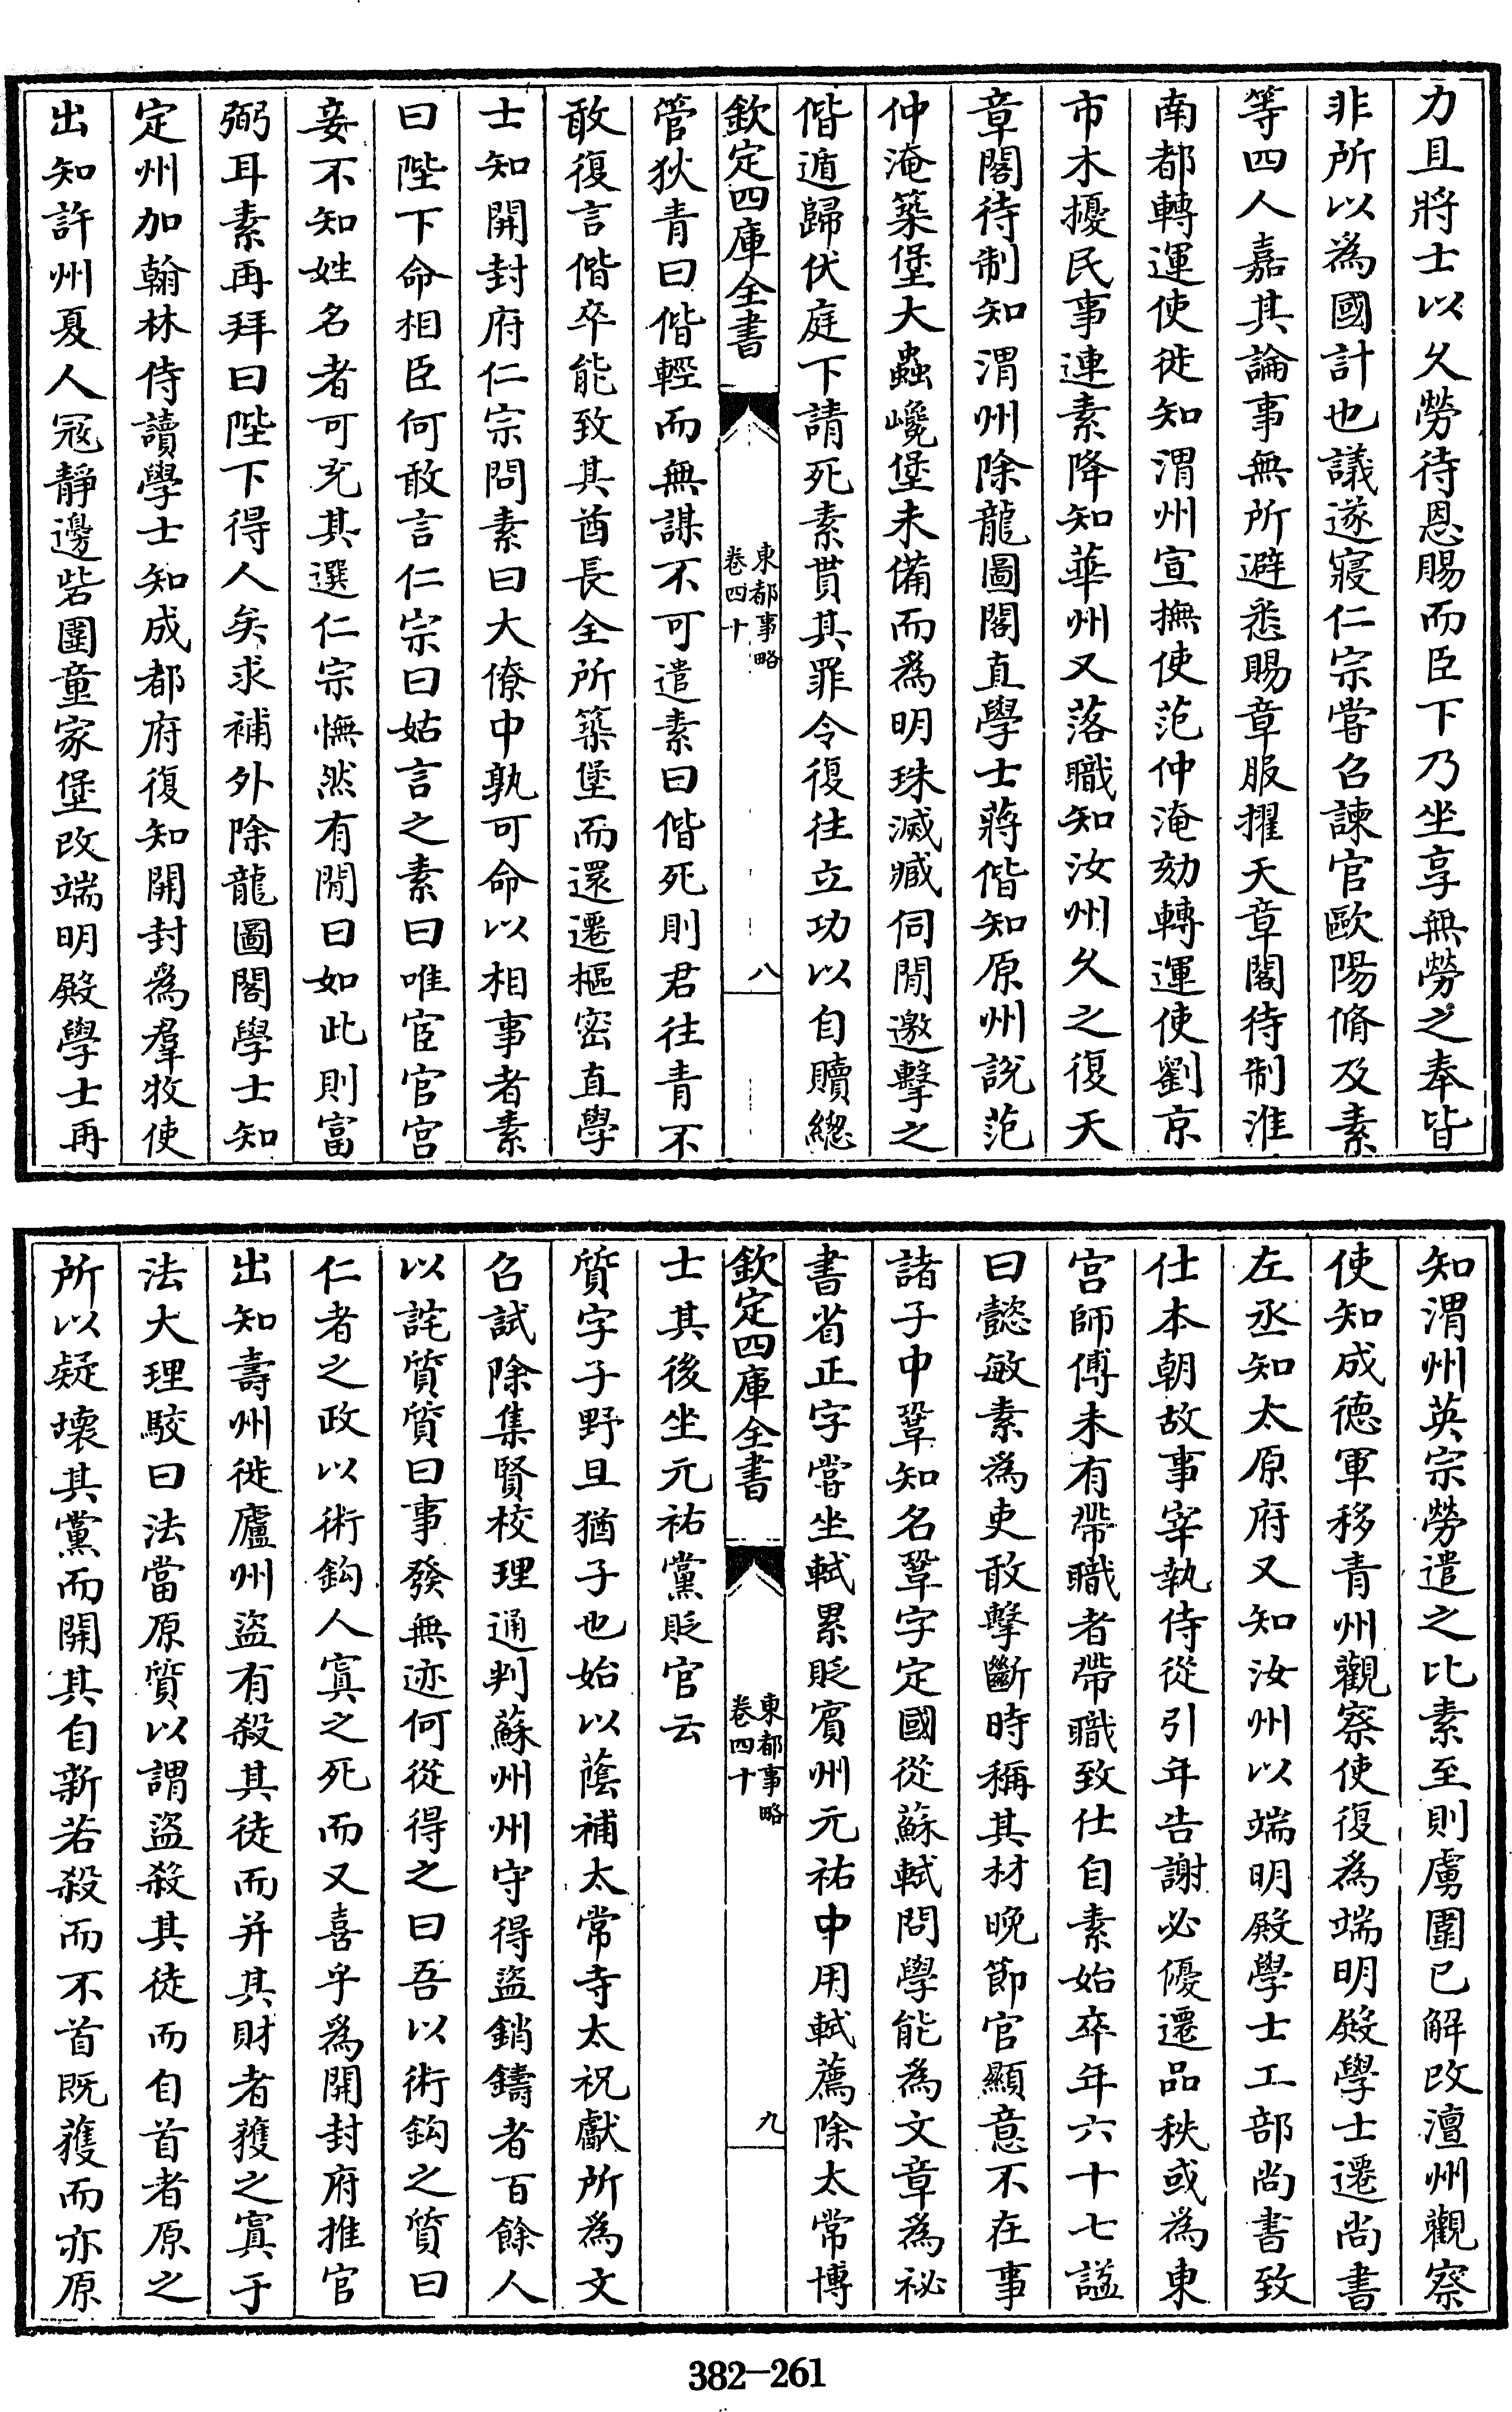 力且將士以久勞待恩賜而臣下乃坐享無勞之奉皆
非所以為國計也議遂寢仁宗嘗召諫官歐陽脩及素
等四人嘉其論事無所避悉賜章服擢天章閣待制淮
南都轉運使徙知渭州宣撫使范仲淹劾轉運使劉京
市木擾民事連素降知華州又落職知汝州久之復天
章閣待制知渭州除龍圖閣直學士蔣偕知原州說范
仲淹築堡大蟲巉堡未備而為明珠滅臧伺間邀擊之
偕遁歸伏庭下請死素貰其罪令復往立功以自贖總
欽定四庫全書
東都事略
卷四十
八
管狄青曰偕輕而無謀不可遣素曰偕死則君往青不
敢復言偕卒能致其酋長全所築堡而還遷樞密直學
士知開封府仁宗問素曰大僚中孰可命以相事者素
曰陛下命相臣何敢言仁宗曰姑言之素曰唯宦官宮
妾不知姓名者可充其選仁宗憮然有間曰如此則富
弼耳素再拜曰陛下得人矣求補外除龍圖閣學士知
定州加翰林侍讀學士知成都府復知開封為羣牧使
出知許州夏人冦靜邊砦圍童家堡改端明殿學士再
知渭州英宗勞遣之比素至則虜圍已解改澶州觀察
使知成德軍移青州觀察使復為端明殿學士遷尚書
左丞知太原府又知汝州以端明殿學士工部尚書致
仕本朝故事宰執侍從引年告謝必優遷品秩或為東
宮師傅未有帶職者帶職致仕自素始卒年六十七諡
曰懿敏素為吏敢擊斷時稱其材晚節官顯意不在事
諸子中鞏知名鞏字定國從蘇軾問學能為文章為祕
書省正字嘗坐軾累貶賓州元祐中用軾薦除太常博
欽定四庫全書
東都事略
卷四十
九
士其後坐元祐黨貶官云
質字子野旦猶子也始以蔭補太常寺太祝獻所為文
召試除集賢校理通判蘇州州守得盜銷鑄者百餘人
以詫質質曰事發無迹何從得之曰吾以術鈎之質曰
仁者之政以術鈎人寘之死而又喜乎為開封府推官
出知壽州徙廬州盜有殺其徒而并其財者獲之寘于
法大理駮曰法當原質以謂盜殺其徒而自首者原之
所以疑壞其黨而開其自新若殺而不首既獲而亦原
382-261